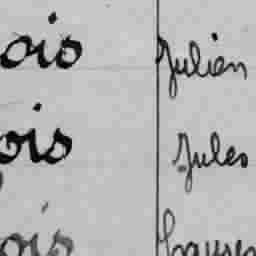 ois Julien
ois Jules
ois